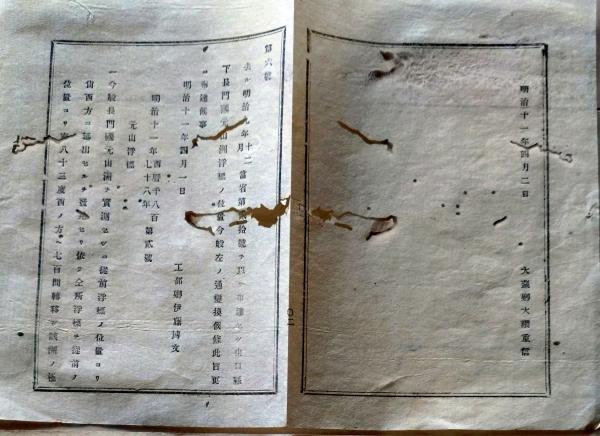 明治十一年四月二日
大藏卿大隈重信
第六號
去ル明治九年十二月當省第 拾號ヲ以テ布達セシ 口
下長門國元山洲浮標ノ位置今般左ノ通變換候條此旨更
ニ布達候事
明治十一年四月一日
工部卿伊藤博文
明治十一年西曆千八百七十八年第貳號
元山浮標
一今般長門國元山洲ヲ實測セシニ從前浮標ノ位置ヨリ
西方ニ 出セルヲ 依テ 所浮標ヲ從前ノ
位置ヨリ 八十三度西ノ方ヘ七百間轉移シ該洲ノ極